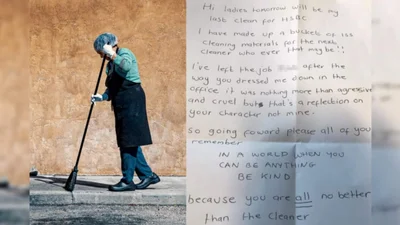 Hi ladies tomorrow will be my
last clean for HSBC
I have made up a buckets of
cleaning materials for the next
cleaner who ever that may be!!
I've left the job after the
way you dressed me down in the
office it was nothing more than aggressive
and cruel but that's a reflection on
your character not mine.
So going forward please all of you
remember
IN A WORLD WHEN YOU
CAN BE ANYTHING
BE KIND
because you are all no better
than the cleaner